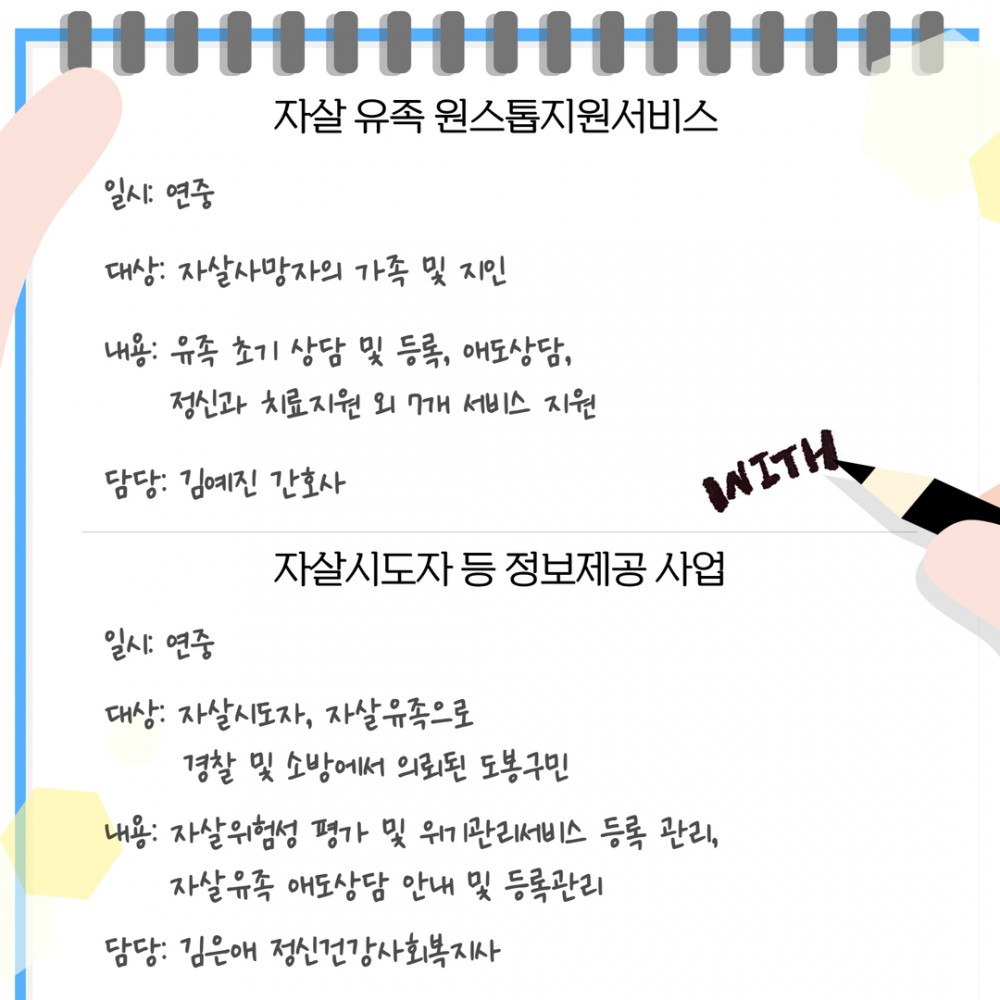 자살 유족 원스톱지원서비스
일시: 연중
대상: 자살사망자의 가족 및 지인
내용: 유족 초기 상담 및 등록, 애도상담,
정신과 치료지원 외 7개 서비스 지원
담당: 김예진 간호사
WITH
자살시도자 등 정보제공 사업
일시: 연중
대상: 자살시도자, 자살유족으로
경찰 및 소방에서 의뢰된 도봉구민
내용: 자살위험성 평가 및 위기관리서비스 등록 관리,
자살유족 애도상담 안내 및 등록관리
담당: 김은애 정신건강사회복지사